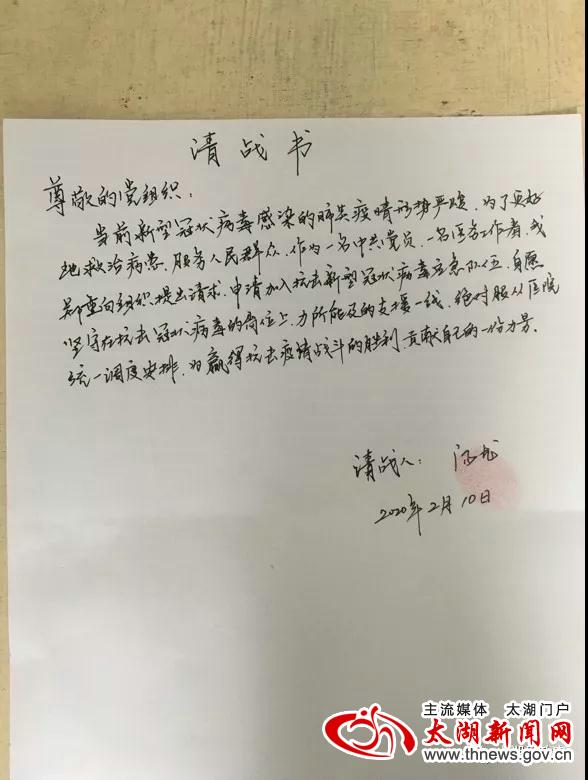 请战书
尊敬的党组织：
当前新型冠状病毒感染的肺炎疫情形势严峻，为了更好
地救治病患，服务人民群众，作为一名中共党员，一名医务工作者，我
郑重向组织提出请求，申请加入抗击新型冠状病毒应急队伍，自愿
坚守在抗击冠状病毒的岗位上，力所能及的支援一线，绝对服从医院
统一调度安排，为赢得抗击疫情战斗的胜利贡献自己的一份力量。
请战人：
2020年2月10日
主流媒体 太湖门户
太湖新闻网
www.thnews.gov.cn